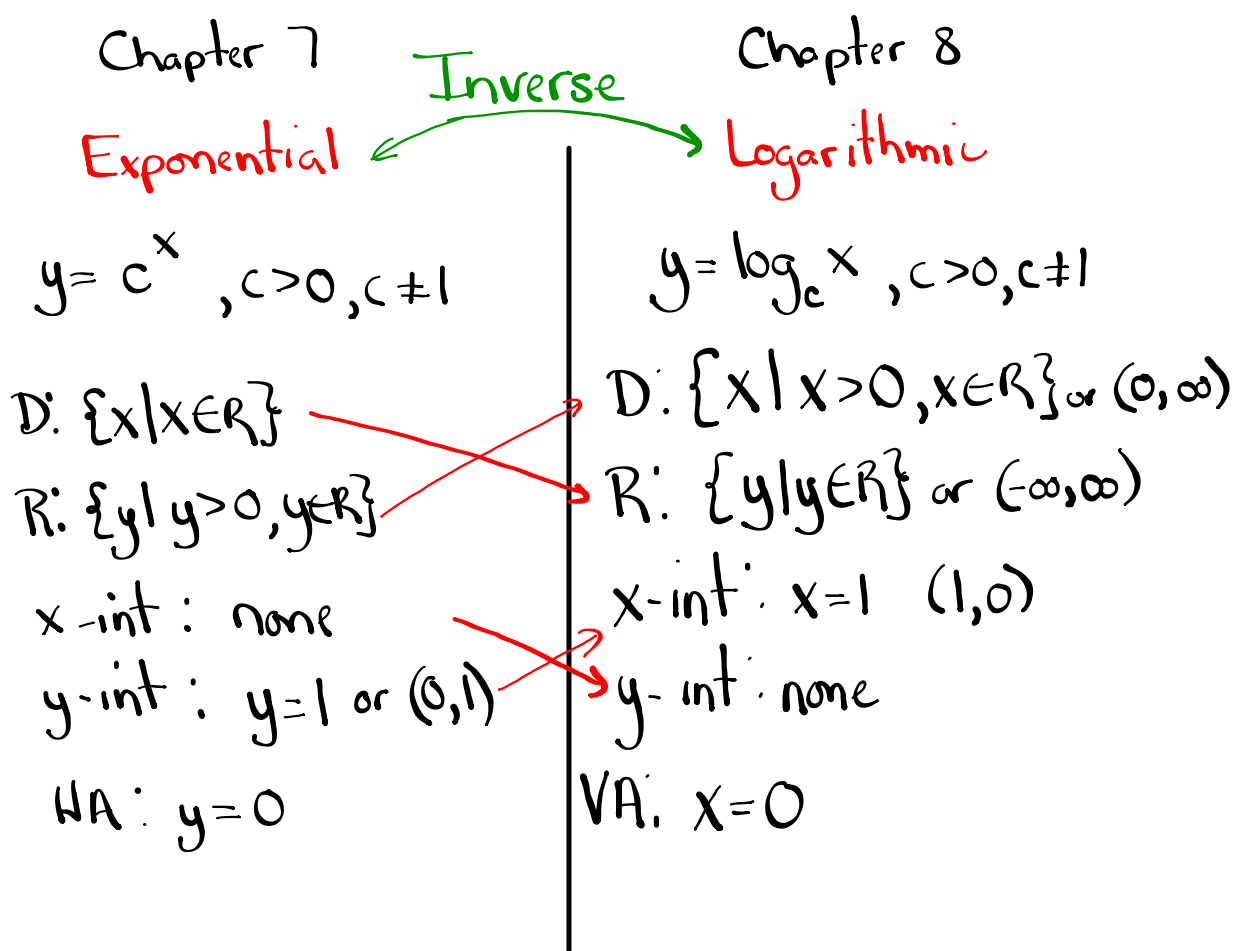 Chapter 7
Exponential
Inverse
y = c^x , c>0, c≠1
D: {x|x∈R}
R: {y| y>0, y∈R}
x-int : none
y-int : y=1 or (0,1)
HA: y=0
Chapter 8
Logarithmic
y = log_c x , c>0, c≠1
D: {x | x>0, x∈R} or (0,∞)
R: {y|y∈R} or (-∞,∞)
x-int: x=1 (1,0)
y-int: none
VA: x=0